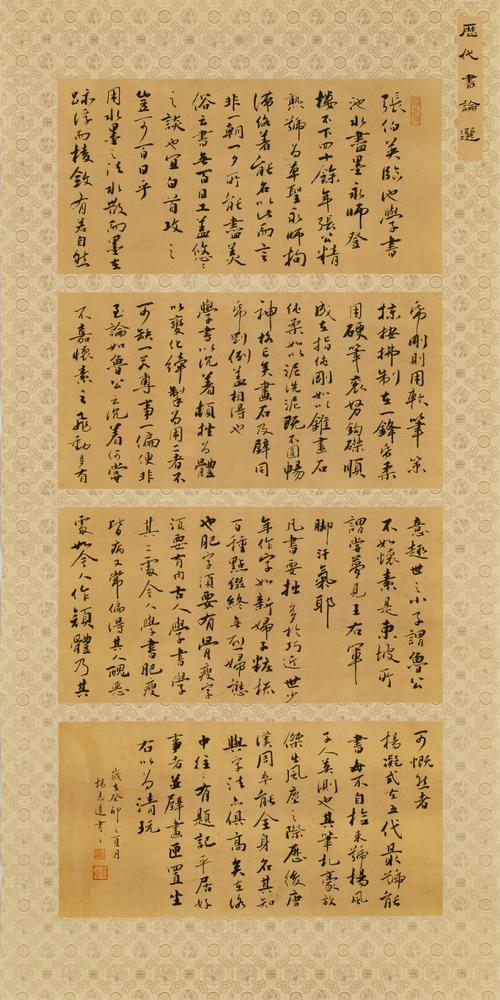 歷代書論選
張伯英臨池學書
池水盡墨永師登
樓不下四十餘年張公精
熟號為草聖永師拘
滯終著能名以此而言
非一朝一夕所能盡美
俗云書無百日工蓋悠悠
之談也宜白首攻之
豈可百日乎
用水墨之法水散而墨在
跡浮而棱斂有若自然
紙剛則用軟筆策
掠按拂制在一鋒紙柔
用硬筆衮努鈎磔順
成在指純剛如以錐畫石
純柔如以泥洗泥既不圓暢
神格亡矣畫石及壁同
紙剛例蓋相得也
學書以沉著頓挫為體
以變化牽掣為用二者不
可缺一若專事一偏便非
至論如魯公之沉著何嘗
不嘉懷素之飛動多有
意趣世之小子謂魯公
不如懷素是東坡所
謂嘗夢見王右軍
脚汗氣耶
凡書要拙多於巧近世少
年作字如新婦子粧梳
百種點綴終無烈婦態
也肥字須要有骨瘦字
須要有肉古人學書學
其二處今人學書肥瘦
皆病又常偏得其人醜惡
處如今人作顏體乃其
可慨然者
楊凝式在五代最號能
書每不自檢束號楊風
子人莫測也其筆札豪放
傑出風塵之際歷後唐
漢周卒能全身名其知
與字法亦俱高矣在洛
中往往有題記平居好
事者並壁畫匣置坐
右以為清玩
歲在癸卯之夏月
楊志達書之